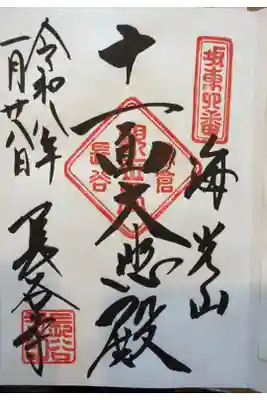 坂東四番
海光山
十一面大悲殿
鎌倉
長谷
長谷寺
令和八年
一月廿八日